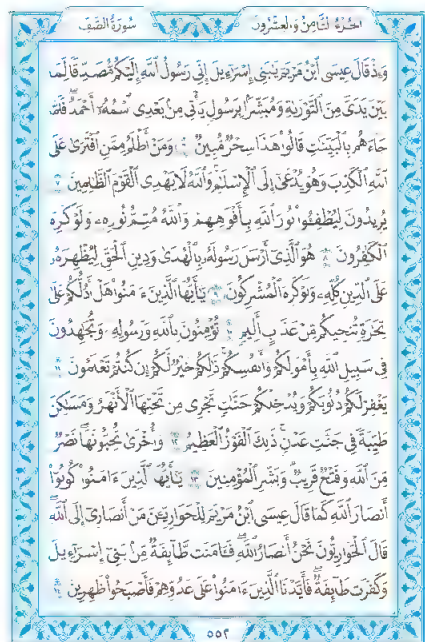 سُورَةُ الصَّفِّ الجُزْءُ الثَّامِنُ وَالعِشْرُونَ
وَإِذْ قَالَ عِيسَى ابْنُ مَرْيَمَ يَٰبَنِىٓ إِسْرَٰٓءِيلَ إِنِّى رَسُولُ ٱللَّهِ إِلَيْكُم مُّصَدِّقًا لِّمَا
بَيْنَ يَدَىَّ مِنَ ٱلتَّوْرَىٰةِ وَمُبَشِّرًۢا بِرَسُولٍ يَأْتِى مِنۢ بَعْدِى ٱسْمُهُۥٓ أَحْمَدُ فَلَمَّا
جَآءَهُم بِٱلْبَيِّنَٰتِ قَالُوا۟ هَٰذَا سِحْرٌ مُّبِينٌ ٦ وَمَنْ أَظْلَمُ مِمَّنِ ٱفْتَرَىٰ عَلَى
ٱللَّهِ ٱلْكَذِبَ وَهُوَ يُدْعَىٰٓ إِلَى ٱلْإِسْلَٰمِ وَٱللَّهُ لَا يَهْدِى ٱلْقَوْمَ ٱلظَّٰلِمِينَ ٧
يُرِيدُونَ لِيُطْفِـُٔوا۟ نُورَ ٱللَّهِ بِأَفْوَٰهِهِمْ وَٱللَّهُ مُتِمُّ نُورِهِۦ وَلَوْ كَرِهَ
ٱلْكَٰفِرُونَ ٨ هُوَ ٱلَّذِىٓ أَرْسَلَ رَسُولَهُۥ بِٱلْهُدَىٰ وَدِينِ ٱلْحَقِّ لِيُظْهِرَهُۥ
عَلَى ٱلدِّينِ كُلِّهِۦ وَلَوْ كَرِهَ ٱلْمُشْرِكُونَ ٩ يَٰٓأَيُّهَا ٱلَّذِينَ ءَامَنُوا۟ هَلْ أَدُلُّكُمْ عَلَىٰ
تِجَٰرَةٍ تُنجِيكُم مِّنْ عَذَابٍ أَلِيمٍ ١٠ تُؤْمِنُونَ بِٱللَّهِ وَرَسُولِهِۦ وَتُجَٰهِدُونَ
فِى سَبِيلِ ٱللَّهِ بِأَمْوَٰلِكُمْ وَأَنفُسِكُمْ ذَٰلِكُمْ خَيْرٌ لَّكُمْ إِن كُنتُمْ تَعْلَمُونَ ١١
يَغْفِرْ لَكُمْ ذُنُوبَكُمْ وَيُدْخِلْكُمْ جَنَّٰتٍ تَجْرِى مِن تَحْتِهَا ٱلْأَنْهَٰرُ وَمَسَٰكِنَ
طَيِّبَةً فِى جَنَّٰتِ عَدْنٍ ذَٰلِكَ ٱلْفَوْزُ ٱلْعَظِيمُ ١٢ وَأُخْرَىٰ تُحِبُّونَهَا نَصْرٌ
مِّنَ ٱللَّهِ وَفَتْحٌ قَرِيبٌ وَبَشِّرِ ٱلْمُؤْمِنِينَ ١٣ يَٰٓأَيُّهَا ٱلَّذِينَ ءَامَنُوا۟ كُونُوٓا۟
أَنصَارَ ٱللَّهِ كَمَا قَالَ عِيسَى ٱبْنُ مَرْيَمَ لِلْحَوَارِيِّۦنَ مَنْ أَنصَارِىٓ إِلَى ٱللَّهِ
قَالَ ٱلْحَوَارِيُّونَ نَحْنُ أَنصَارُ ٱللَّهِ فَـَٔامَنَت طَّآئِفَةٌ مِّنۢ بَنِىٓ إِسْرَٰٓءِيلَ
وَكَفَرَت طَّآئِفَةٌ فَأَيَّدْنَا ٱلَّذِينَ ءَامَنُوا۟ عَلَىٰ عَدُوِّهِمْ فَأَصْبَحُوا۟ ظَٰهِرِينَ ١٤
٥٥٢